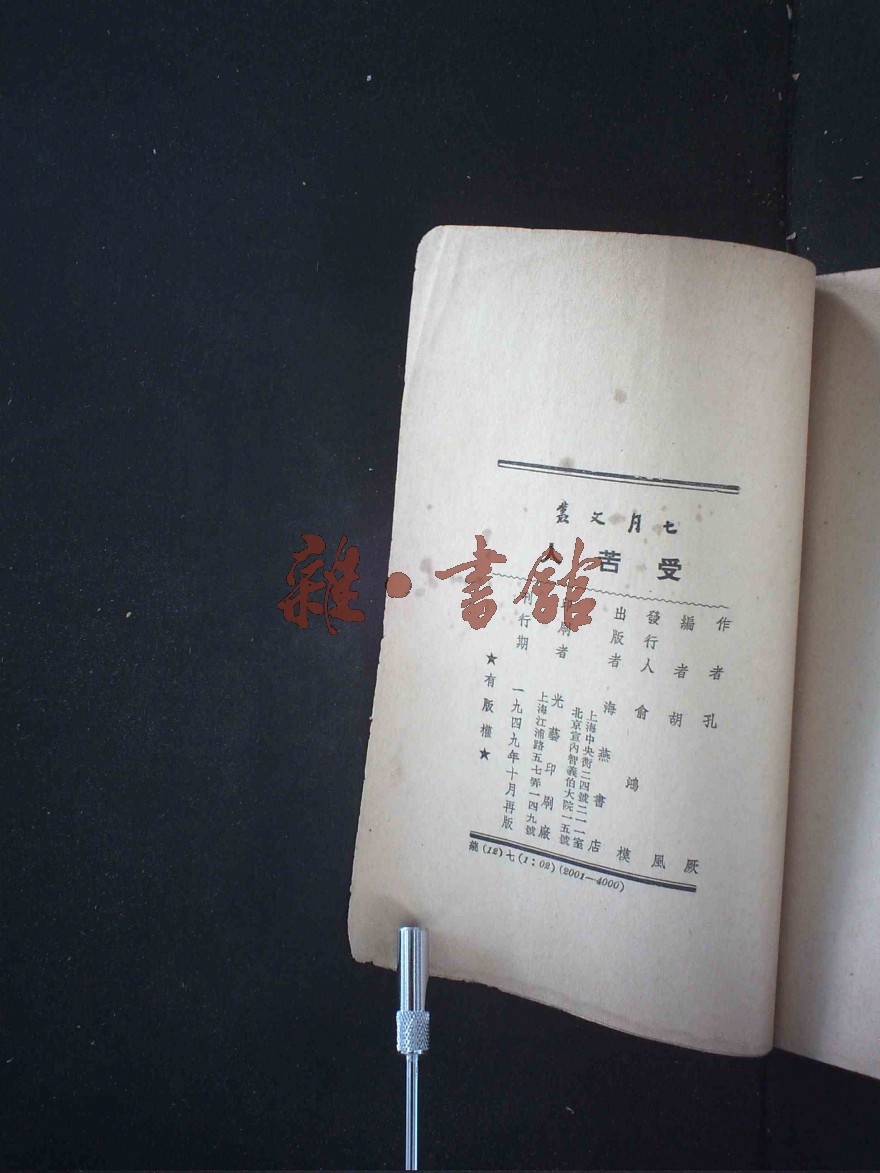 七月文叢
受苦人
作者 孔厥
編者 胡風
發行人 俞鴻模
出版者 海燕書店
上海中央街二四號二一一室
北京宣內智義伯大院一五號
印刷者 光藝印刷廠
上海江浦路五七弄一四九號
刊行期 一九四九年十月再版
★有版權★
(12)七(1:02)(2001—4000)
雜·書館